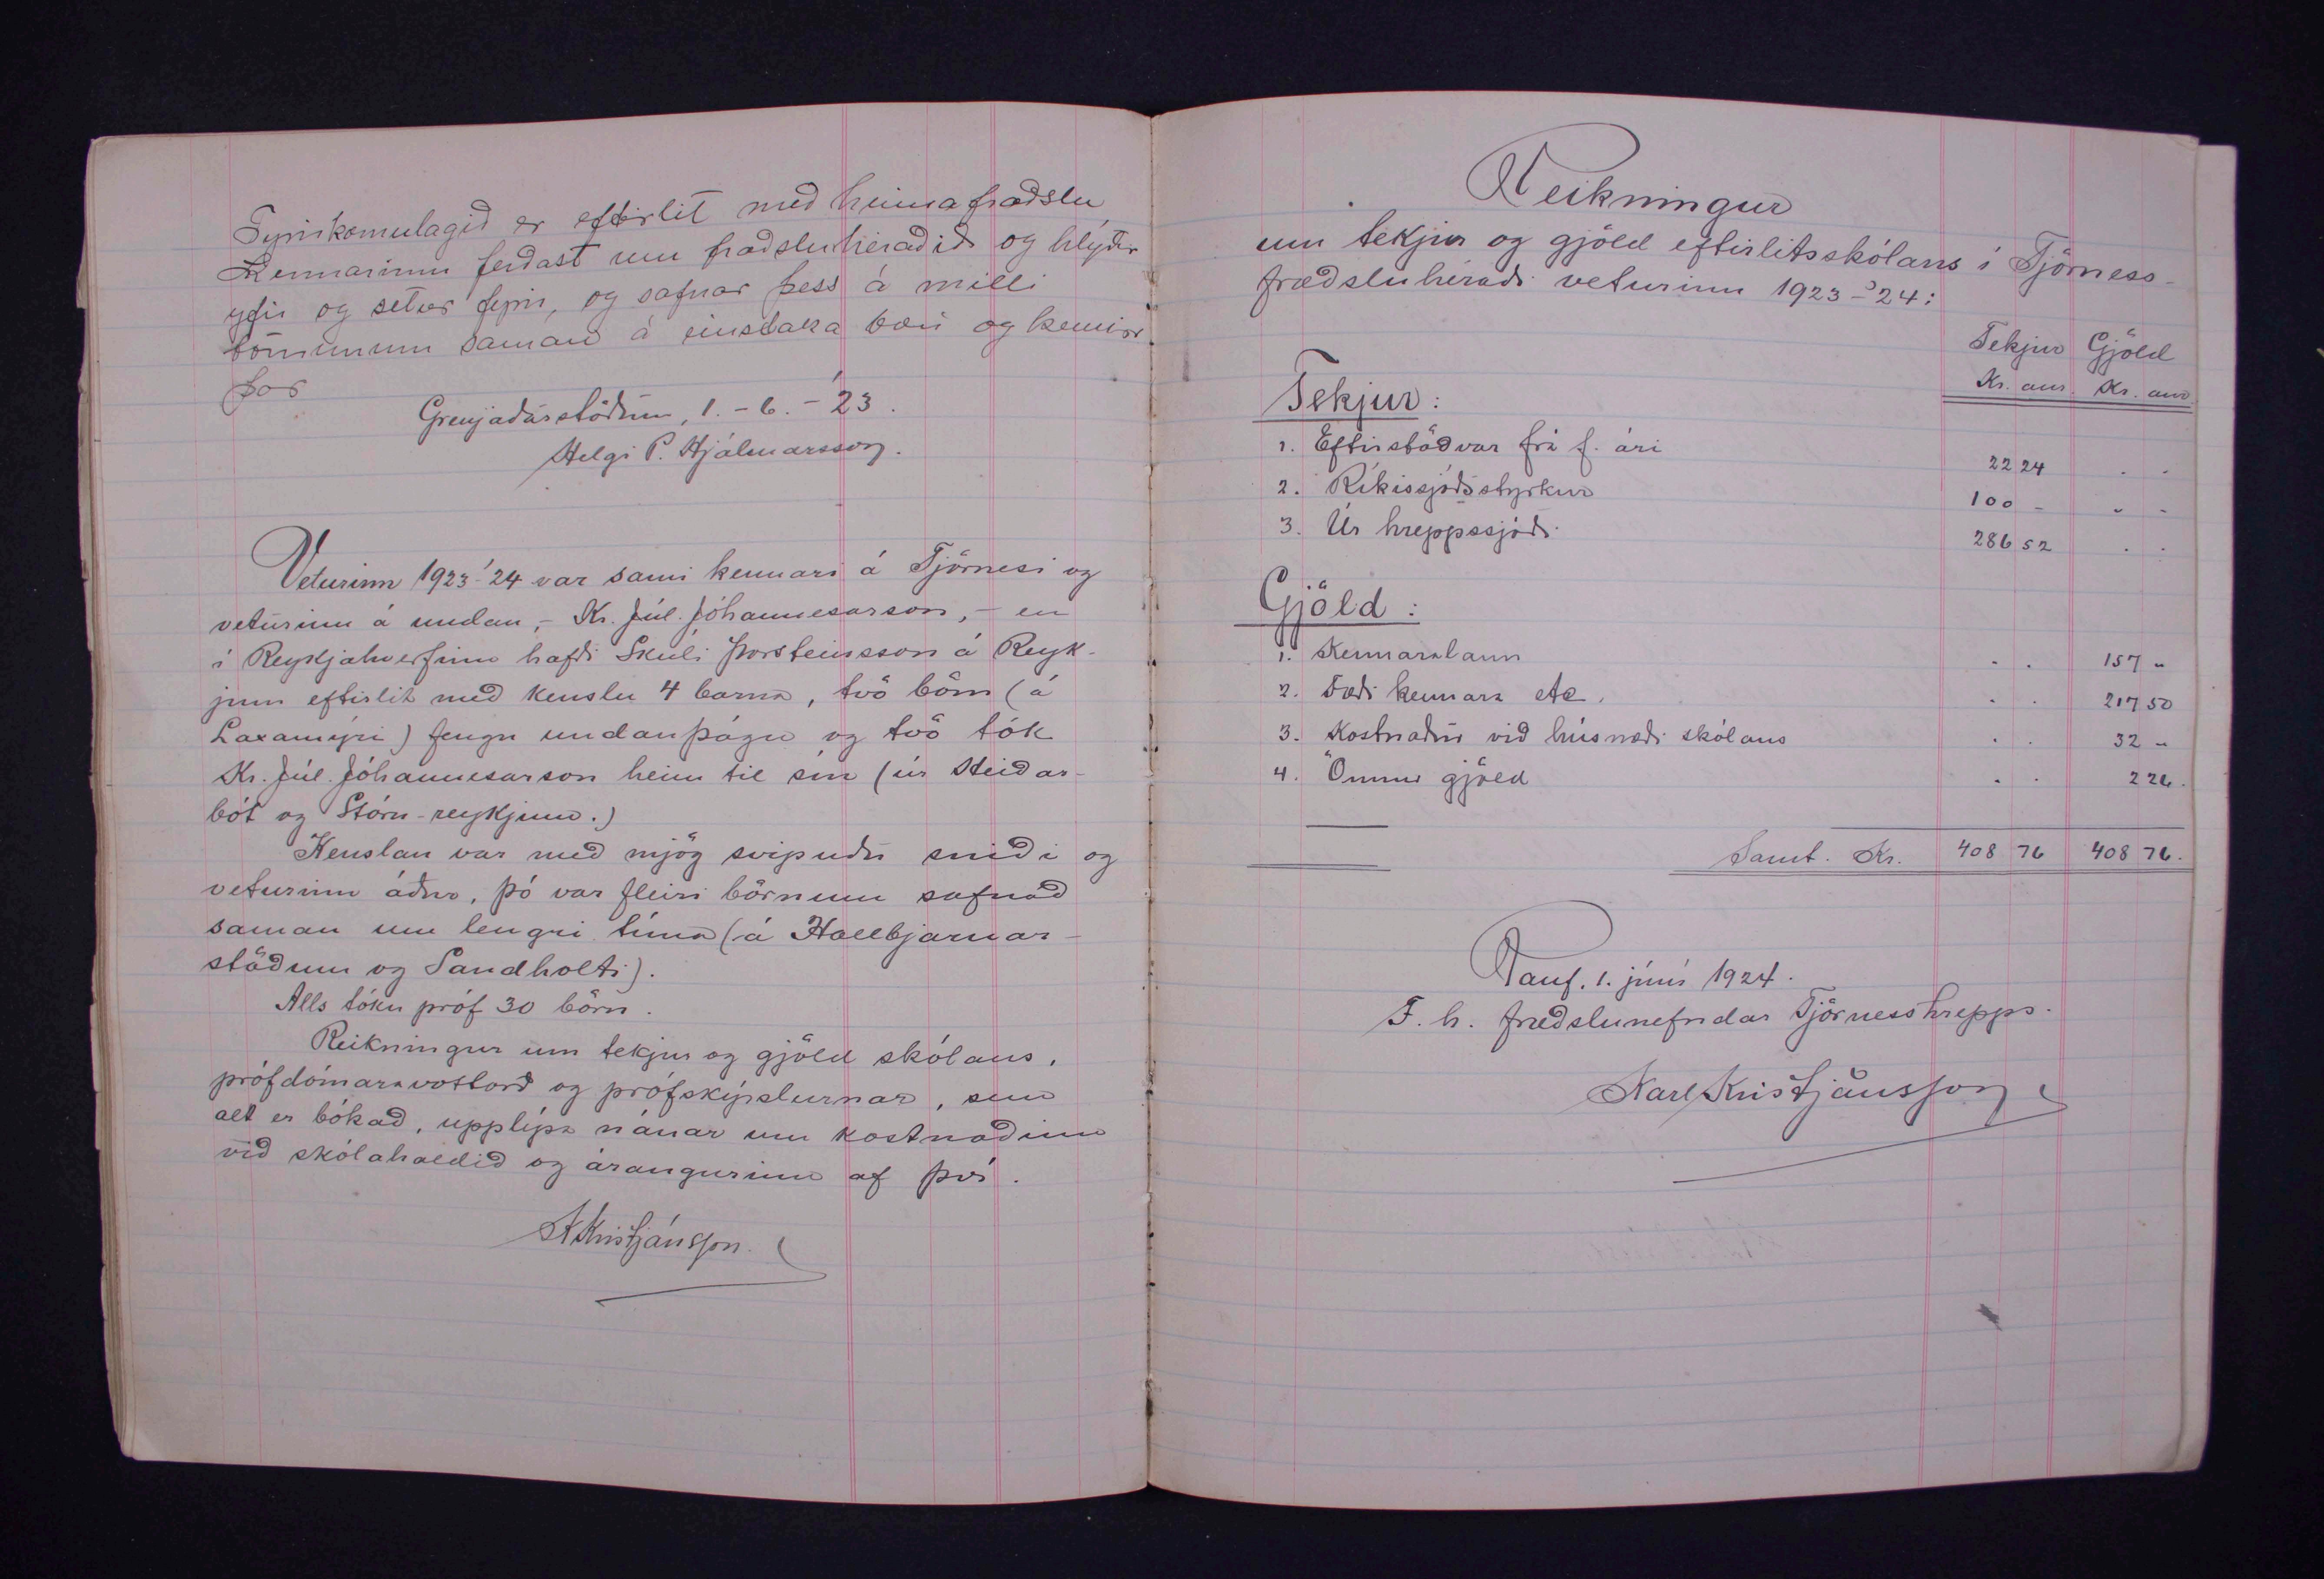 Fyrirkomulagið er eftirlit með heimafræðslu
Kennarinn ferðast um fræðsluhéraðið og hlýðir
yfir og setur fyrir, og safnar þess á milli
börnunum saman á einstaka bæi og kennir
þar
Grenjaðarstöðum, 1. - 6. - '23.
Helgi P. Hjálmarsson.
Veturinn 1923-'24 var sami kennari á Tjörnesi og
veturinn á undan, - Kr. Júl. Jóhannesarson, - en
í Reykjahverfinu hafði Skúli Þorsteinsson á Reyk-
jum eftirlit með kenslu 4 barna, tvö börn (á
Laxamýri) fengu undanþágu og tvö tók
Kr. Júl. Jóhannesarson heim til sín (úr Heiðar-
bót og Stóru-reykjum.)
Kenslan var með mjög svipuðu sniði og
veturinn áður, þó var fleiri börnum safnað
saman um lengri tíma (á Hallbjarnar-
stöðum og Sandholti).
Alls tóku próf 30 börn.
Reikningur um tekjur og gjöld skólans,
prófdómaravottorð og prófskýrslurnar, sem
alt er bókað, upplýsa nánar um kostnaðinn
við skólahaldið og árangurinn af því.
KKristjánsson.
Reikningur
um tekjur og gjöld eftirlitsskólans í Tjörness-
fræðsluhéraði veturinn 1923-'24:
Tekjur Gjöld
Kr. aur. Kr. aur.
Tekjur:
1. Eftirstöðvar frá f. ári 22 24 . .
2. Ríkissjóðsstyrkur 100 - " -
3. Úr hreppssjóði 286 52 . .
Gjöld:
1. Kennaralaun . . 157 "
2. Fæði kennara etc. . . 217 50
3. Kostnaður við húsnæði skólans . . 32 "
4. Önnur gjöld . . 2 26.
Samt. Kr. 408 76 408 76.
Rauf. 1. júní 1924.
F. h. fræðslunefndar Tjörnesshrepps.
Karl Kristjánsson